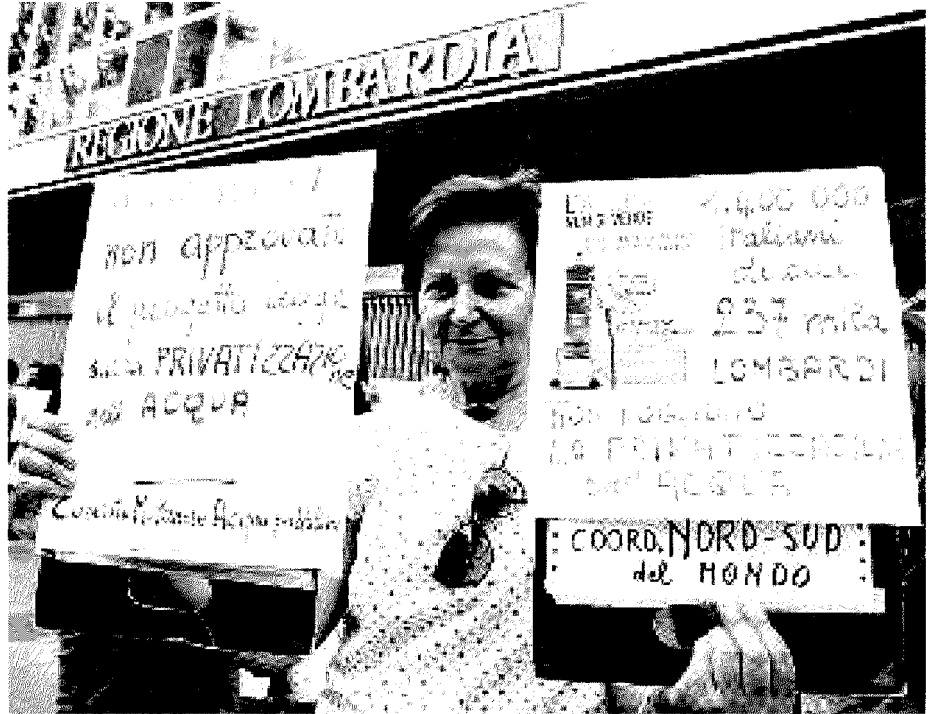 REGIONE LOMBARDIA
non approvate
il progetto legge
sulla PRIVATIZZAZIONE
dell' ACQUA
Comitato Milanese Acqua pubblica
L'ACQUA
NON SI VENDE
1.400 000
italiani
di cui
237 mila
LOMBARDI
NON VOGLIONO
LA PRIVATIZZAZIONE
dell' ACQUA
COORD. NORD-SUD
del MONDO